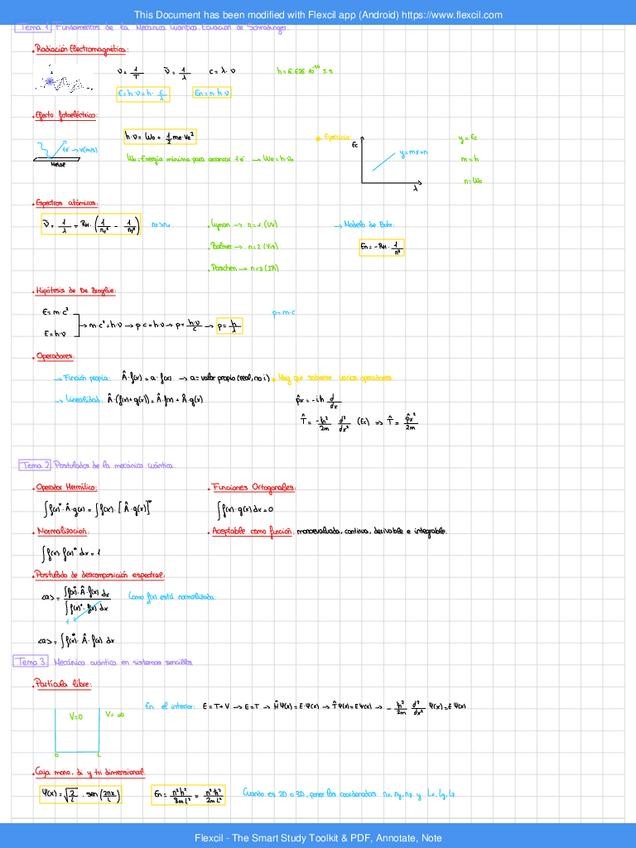 This Document has been modified with Flexcil app (Android) https://www.flexcil.com
Tema 1 Fundamentos de la Mecánica Cuántica. Ecuación de Schrödinger.
· Radiación Electromagnética:
ν = 1/T   ν̄ = 1/λ   c = λ·ν   h = 6.626·10⁻³⁴ J·s
E = h·ν = h· c/λ   En = n h ν
· Efecto fotoeléctrico:
h·ν = W₀ + 1/2 me·ve²
Ejercicio   Ec   y = mx+n   λ   y = Ec
W₀ = Energía mínima para arrancar 1 e⁻ → W₀ = h·ν₀   m = h
n = W₀
· Espectros atómicos:
ν̄ = 1/λ = RH·(1/n₁² - 1/n₂²)   n₂>n₁   · Lyman → n=1 (UV)   → Modelo de Bohr:
· Balmer → n=2 (Vis)   En = -RH· 1/n²
· Paschen → n=3 (IR)
· Hipótesis de De Broglie:
E = m·c²   p = m·c
→ m·c² = h·ν → p·c = h·ν → p = h·ν/c → p = h/λ
E = h·ν
· Operadores:
→ Función propia: Â·f(x) = a·f(x) → a = valor propio (real, no i)   Hay que saberse varios operadores
→ Linealidad: Â·(f(x)+g(x)) = Â·f(x) + Â·g(x)   p̂x = -iħ d/dx
T̂ = -ħ²/2m d²/dx² (Ec) => T̂ = p̂x²/2m
Tema 2 Postulados de la mecánica cuántica.
· Operador Hermítico:   · Funciones Ortogonales:
∫f(x)*·Â·g(x) = ∫f(x)·[Â·g(x)]*   ∫f(x)·g(x)dx = 0
· Normalización:   · Aceptable como función: monoevaluada, continua, derivable e integrable.
∫f(x)·f(x)* dx = 1
· Postulado de descomposición espectral:
<a> = ∫f(x)*·Â·f(x) dx / ∫f(x)*·f(x) dx   Como f(x) está normalizada
1
<a> = ∫f(x)*·Â·f(x) dx
Tema 3 Mecánica cuántica en sistemas sencillos.
· Partícula libre:
V=0   V=∞   En el interior: E=T+V → E=T → Ĥ Ψ(x) = E·Ψ(x) → T̂ Ψ(x) = E Ψ(x) → - ħ²/2m d²/dx² Ψ(x) = E Ψ(x)
0   L
· Caja mono, bi y tri dimensional:
Ψ(x) = √2/L · sen(2πx/L)   En = n²h²/8mL² = n²ħ²/2mL²   Cuando es 2D o 3D, poner las coordenadas nx, ny, nz y Lx, Ly, Lz
Flexcil - The Smart Study Toolkit & PDF, Annotate, Note